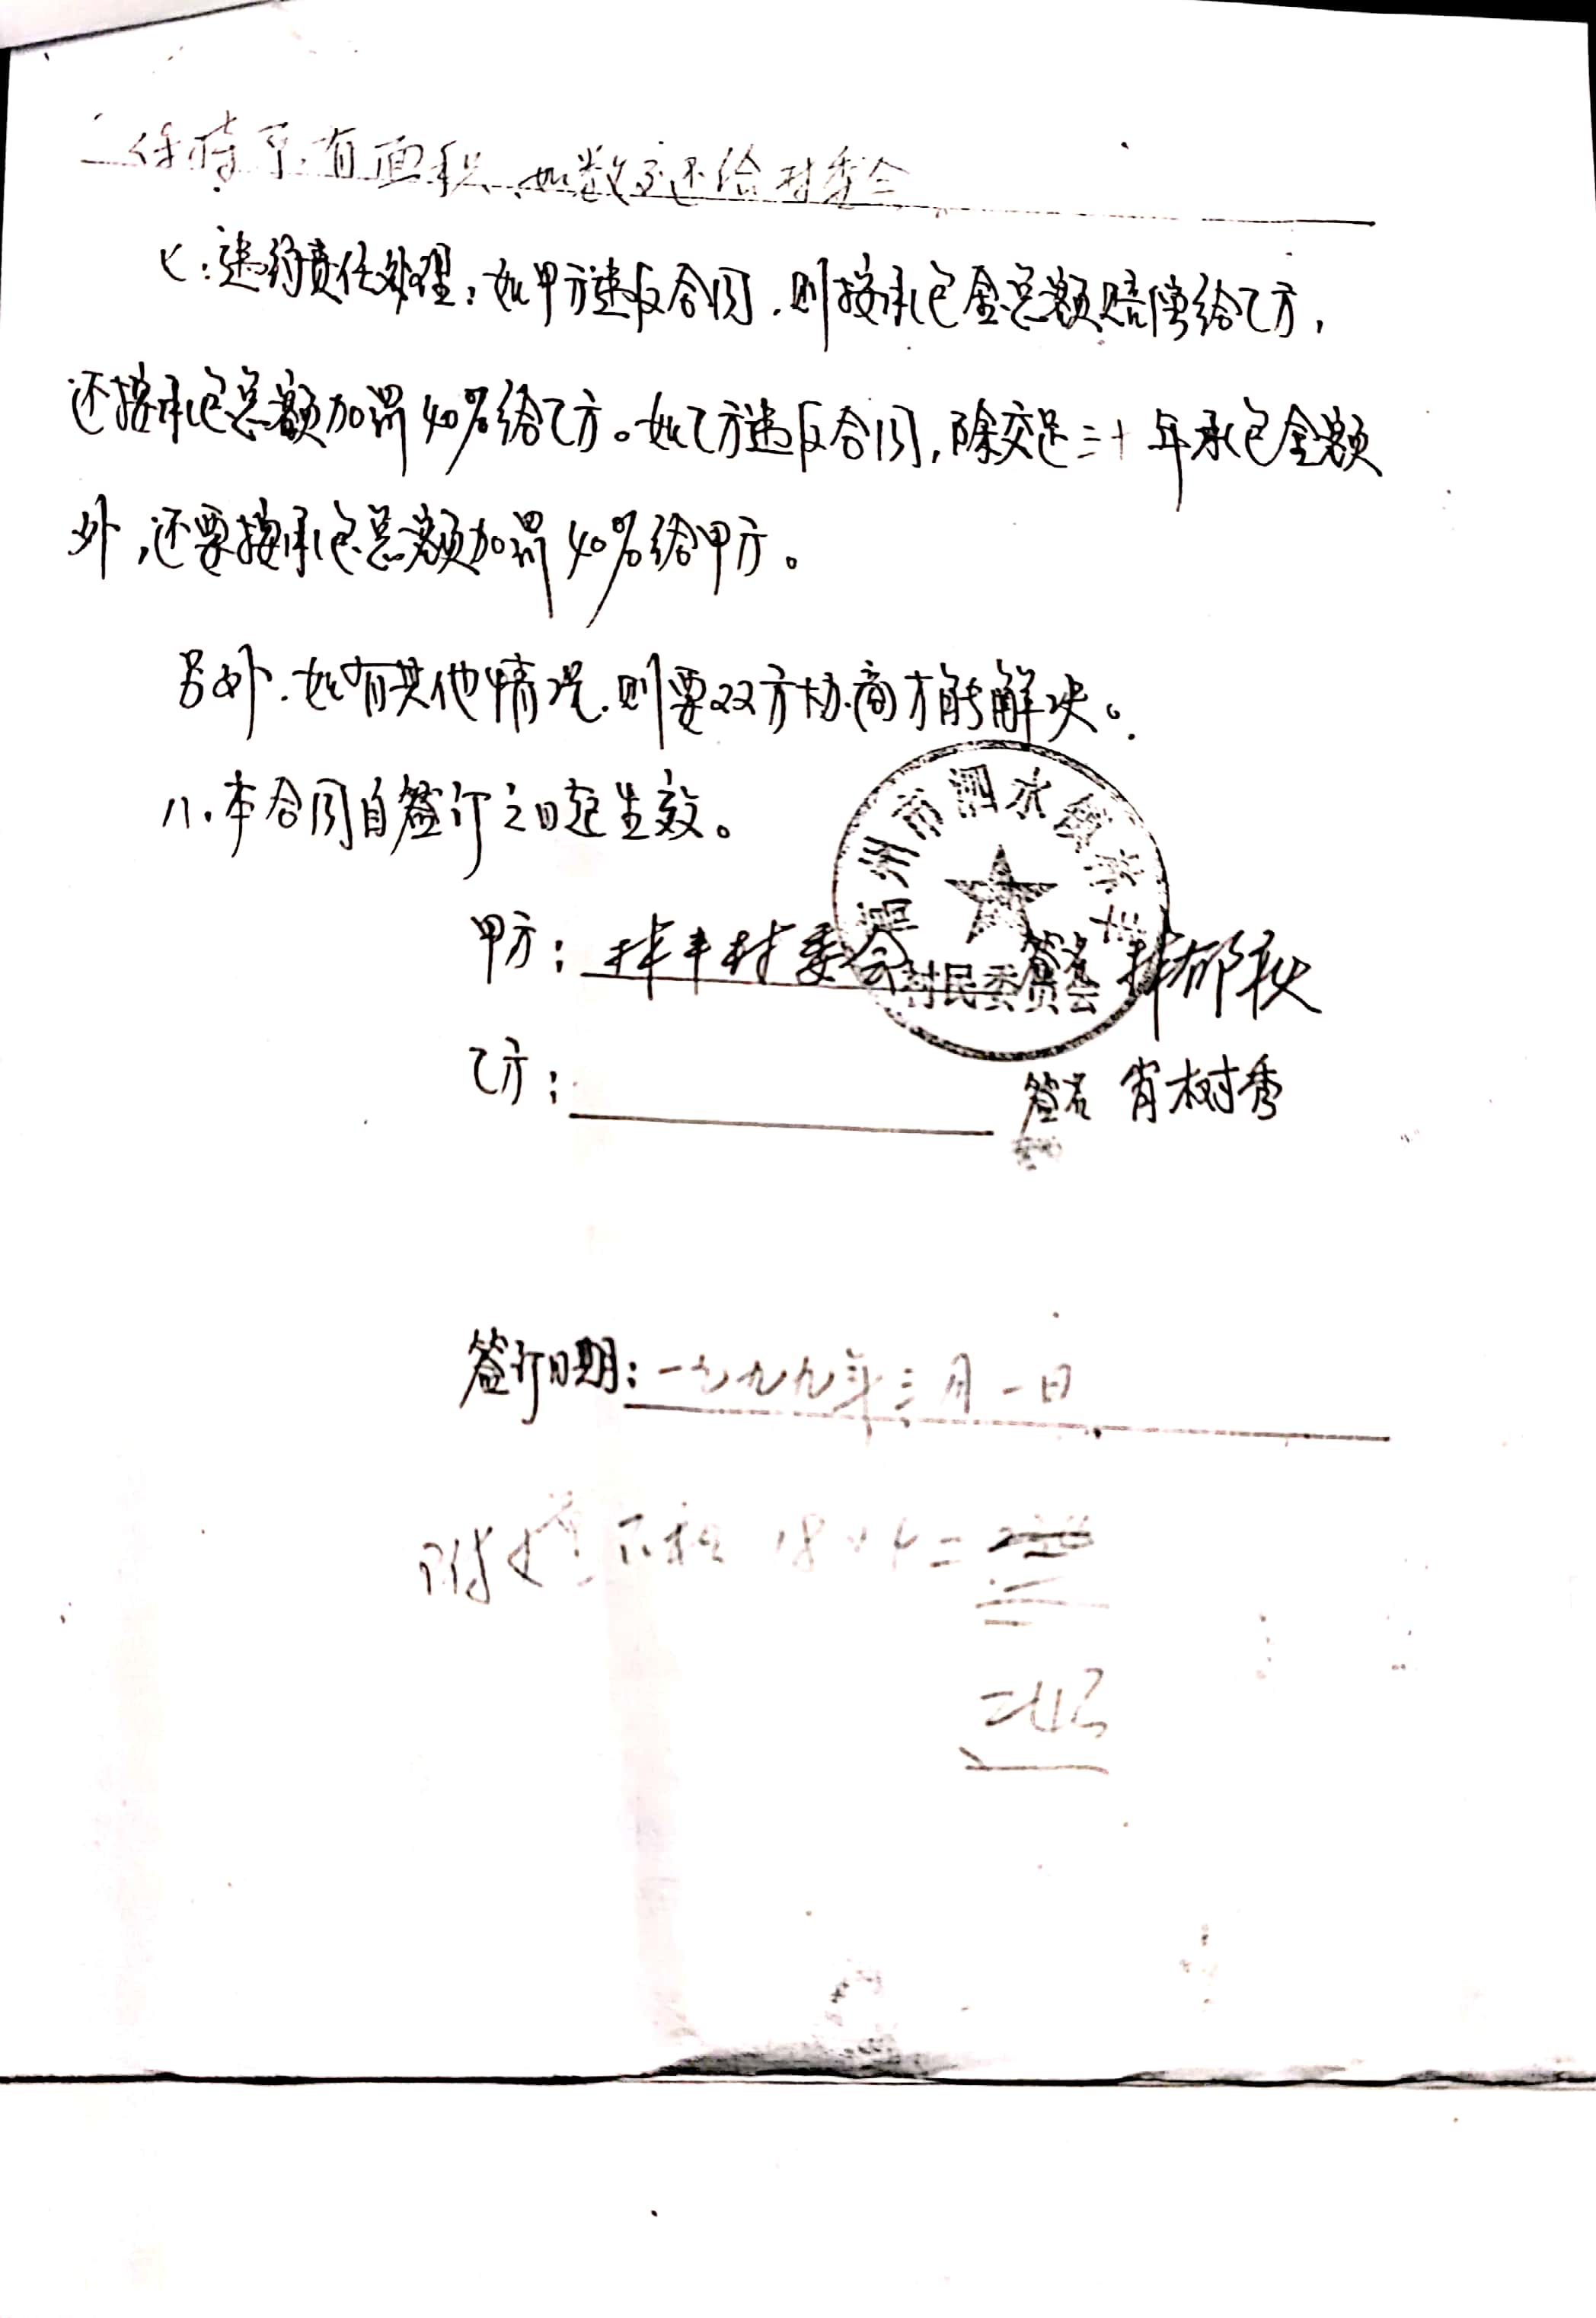 保持原有面积,如数交还给村委会
七:违约责任处理:如甲方违反合同,则按承包金总额赔偿给乙方,
还按承包总额加罚40%给乙方。如乙方违反合同,除交足二十年承包金额
外,还要按承包总额加罚40%给甲方。
另外.如有其他情况.则要双方协商方能解决。
八.本合同自签订之日起生效。
州市泗水镇
村民委员会
甲方: 村委会 签名
乙方: 签名 肖树秀
签订日期:一九九九年三月一日
附